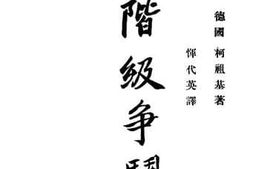 德國 柯祖基著
惲代英譯
階級爭